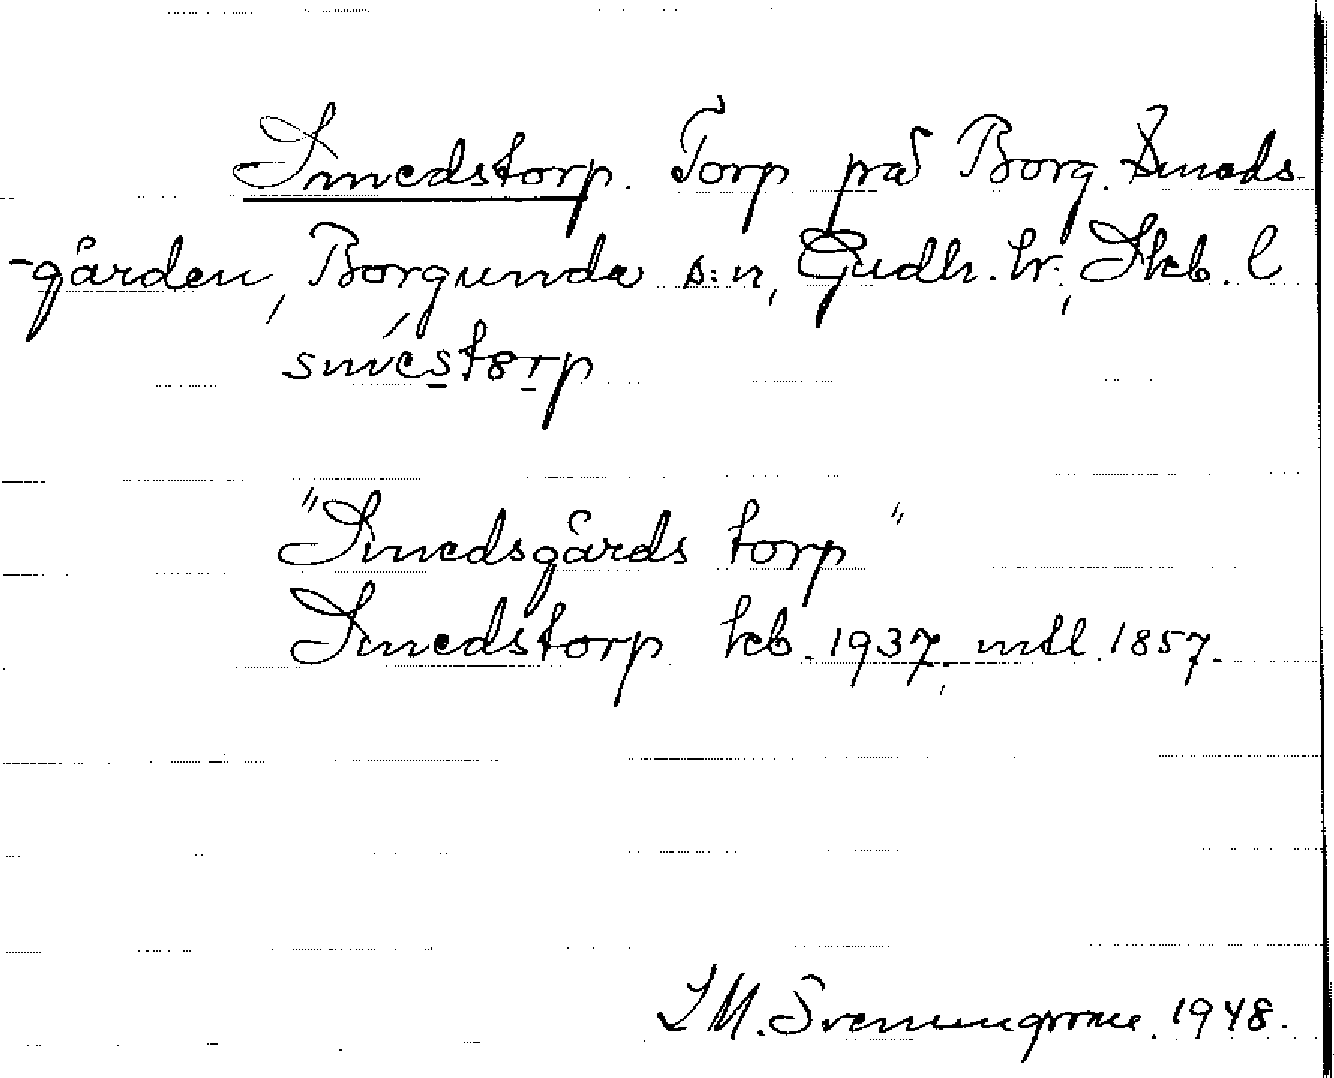 Smedstorp. Torp på Borg. Smeds-
-gården, Borgunda s:n, Gudh. hr, Skb. l
sméstorp
"Smedsgårds torp"
Smedstorp kb. 1937, mtl. 1857.
1948.